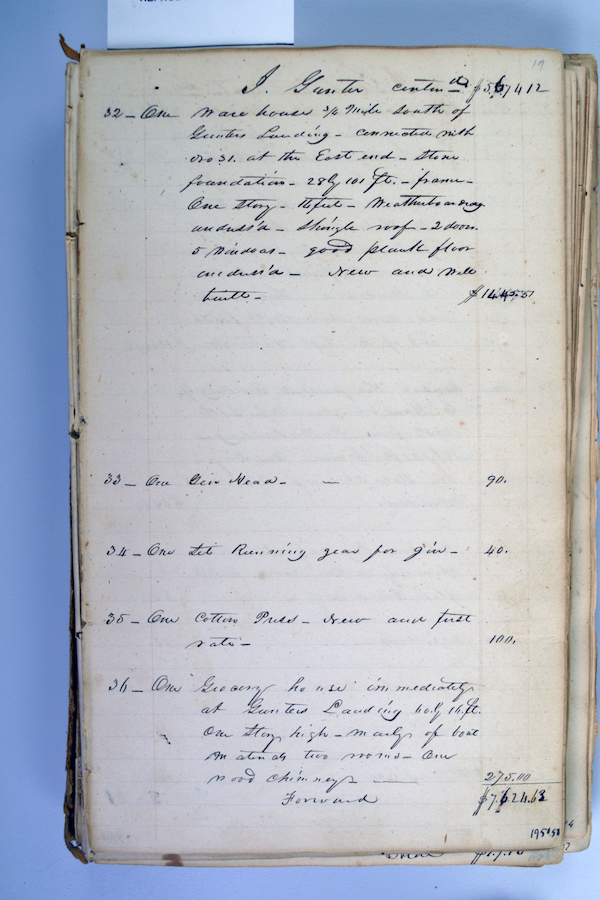 19
J. Gunter continud $5674 12
32 – One Ware house 3/4 Mile South of
Gunters Landing – connected with
No 31. at the East end – Stone
foundation – 28 by 101 ft. – frame –
One Story – – Weatherboarding
undress'd – Shingle roof – 2 doors
5 Windows – good plank floor
undress'd – New and Well
built – $1445.51
33 – One Gin Head – — 90.
34 – One Set Running gear for gin – 40.
35 – One Cotton Press – New and first
rate – 100.
36 – One Grocery house immediately
at Gunters Landing 60 by 16 ft.
One Story high – made of boat
Materials two rooms – One
wood chimney – — 275.00
Forward $7624.63